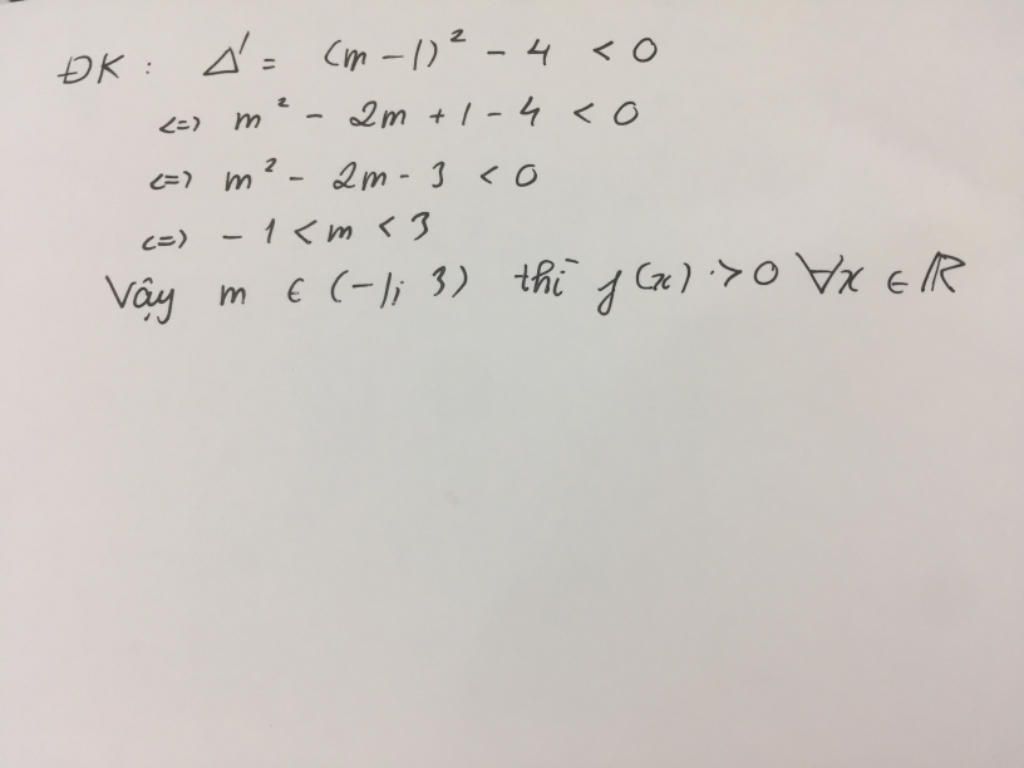 ĐK : Δ' = (m - 1)² - 4 < 0
<=> m² - 2m + 1 - 4 < 0
<=> m² - 2m - 3 < 0
<=> - 1 < m < 3
Vậy m ∈ (-1; 3) thì f(x) > 0 ∀x ∈ ℝ